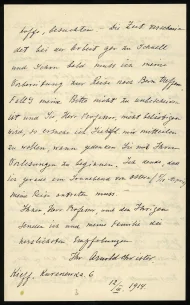 hoffe, besuchten. — Die Zeit verschwin
det bei der Arbeit gar zu schnell
und schon bald muss ich meine
Vorbereitung zur Reise nach Bern treffen
Falls meine Bitte nicht zu unbescheiden
ist und Sie, Herr Professor, nicht belästigen
wird, so ersuche ich höflichst mir mitteilen
zu wollen, wann gedenken Sie mit Ihren
Vorlesungen zu beginnen. Ich denke, dass
ich gerade am
meine Reise antreten muss.
Ihnen Herr Professor, und den Ihrigen
senden ich und meine Familie die
herzlichsten Empfehlungen
Ihr Arnold
Kieff. 6
1914.